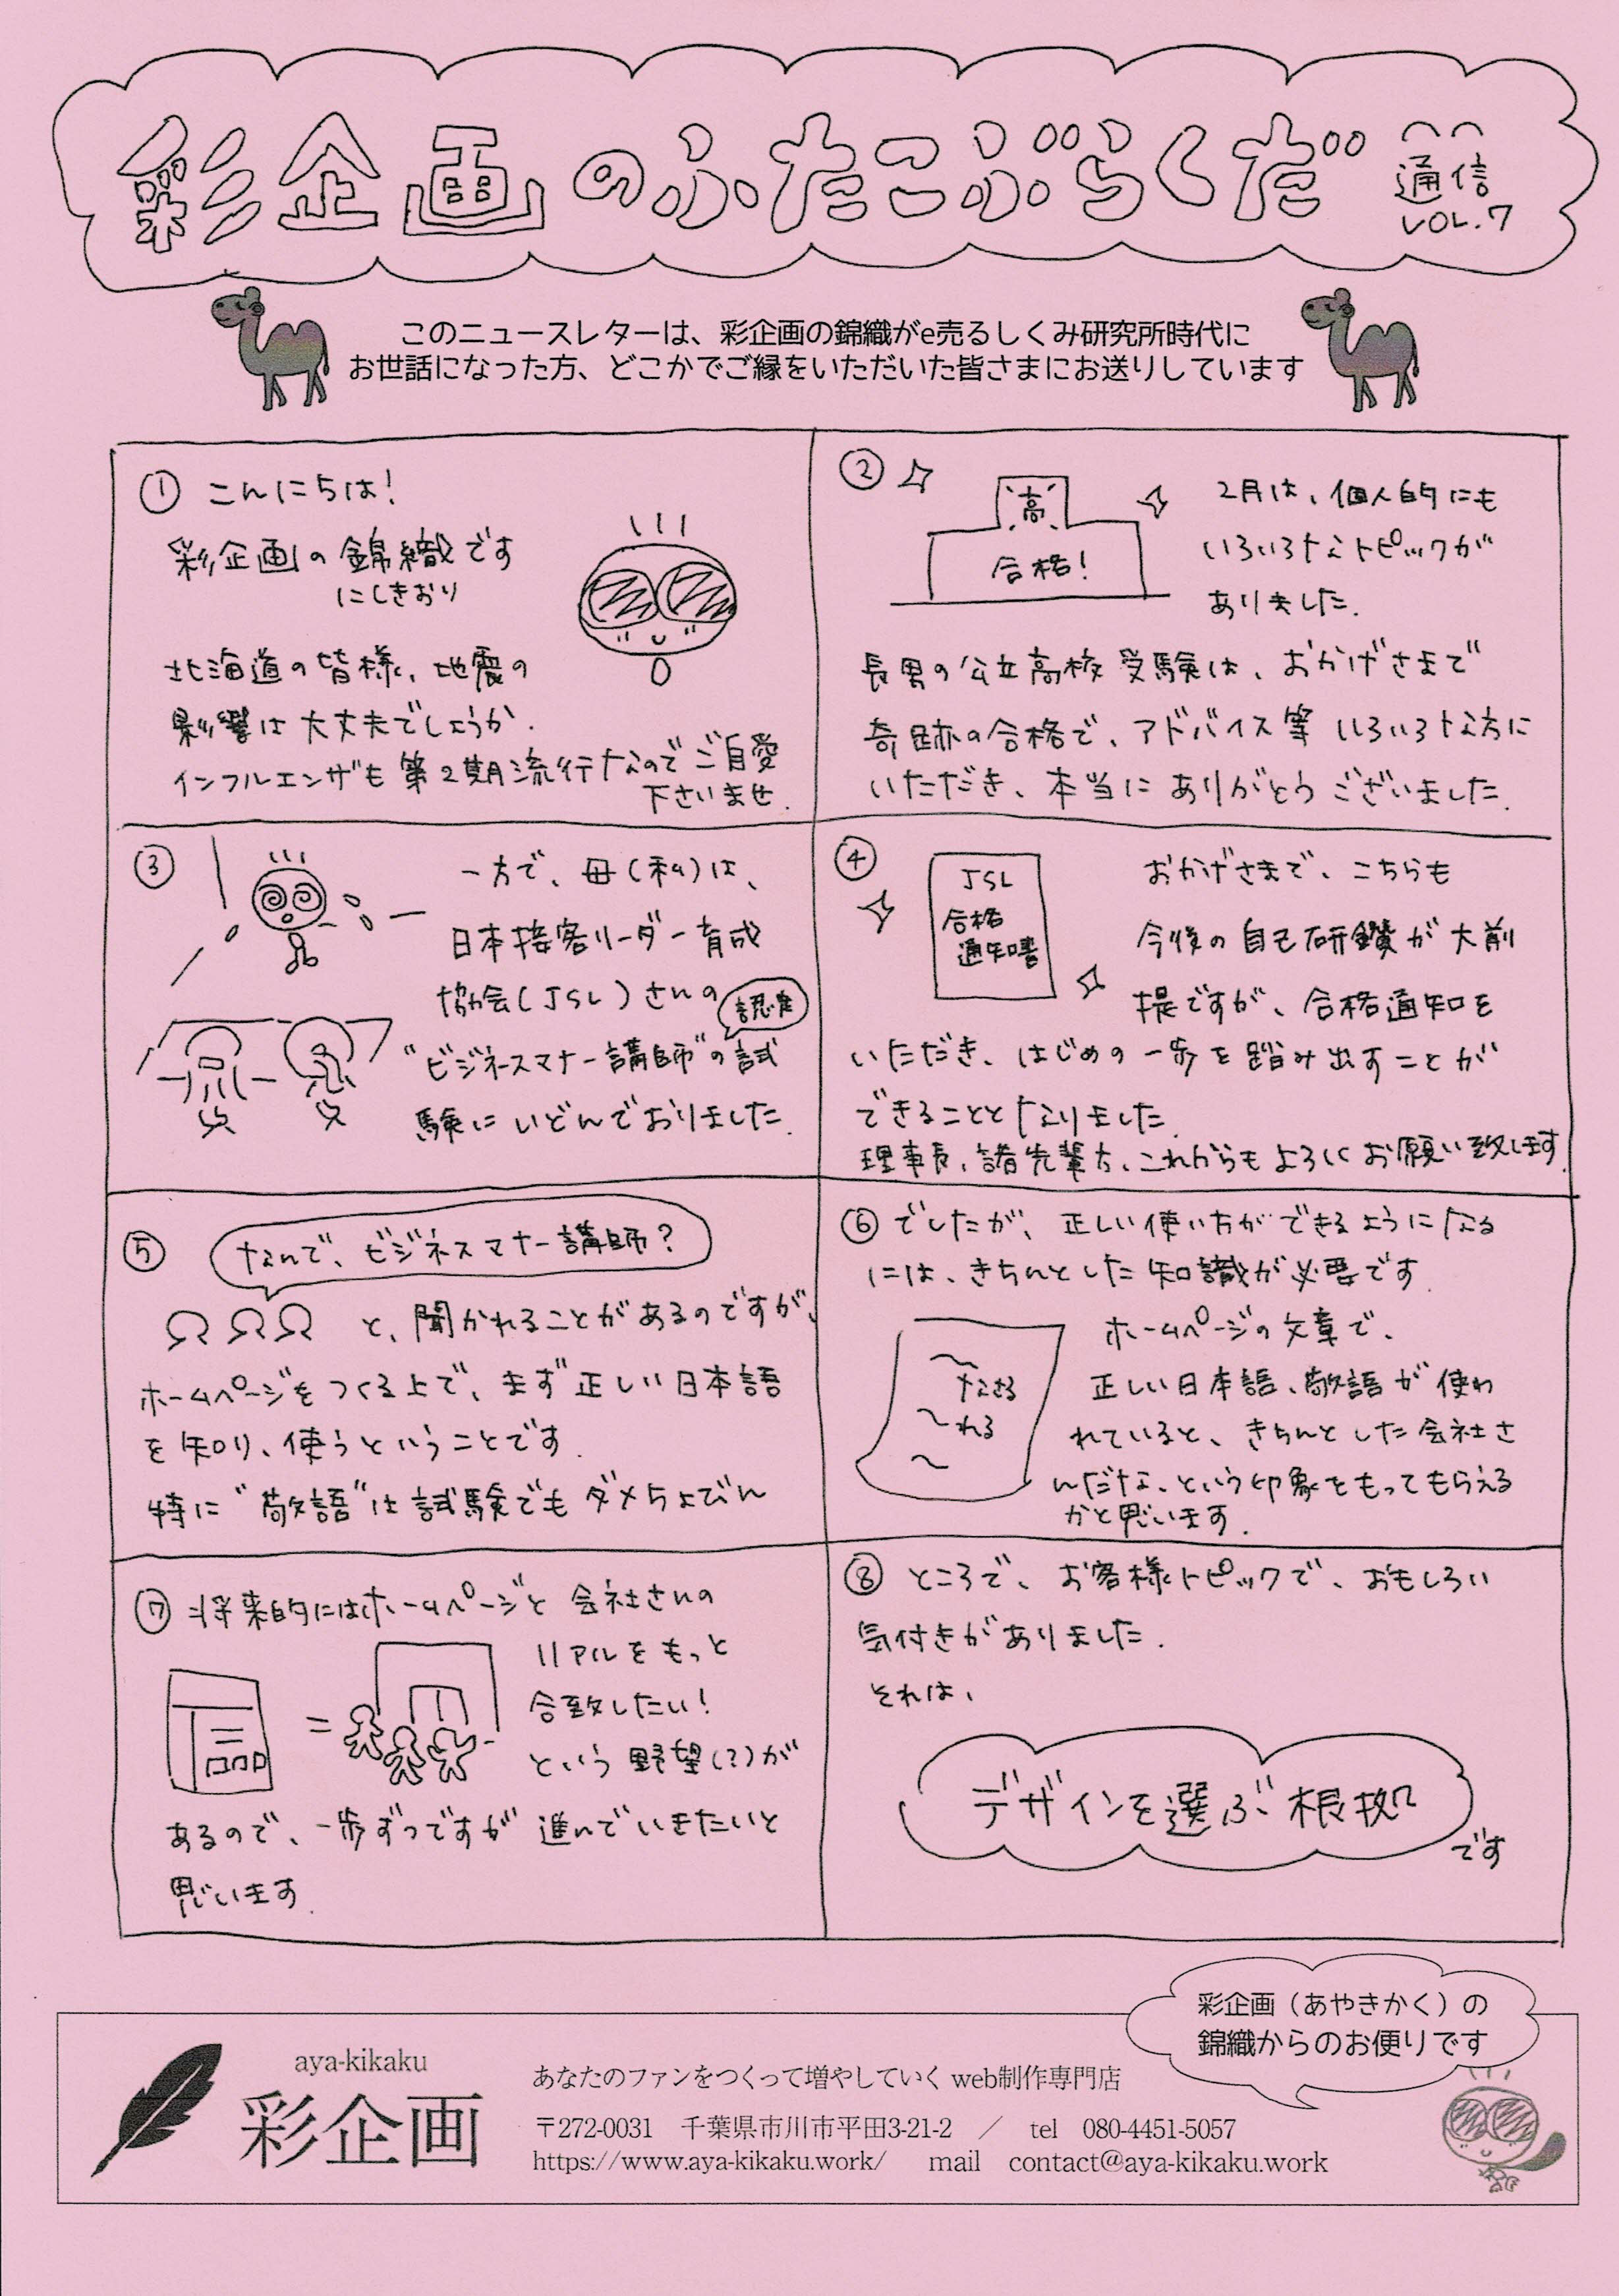 彩企画のふたこぶらくだ
通信
VOL.7
このニュースレターは、彩企画の錦織がe売るしくみ研究所時代に
お世話になった方、どこかでご縁をいただいた皆さまにお送りしています
① こんにちは!
彩企画の錦織です
にしきおり
北海道の皆様、地震の
影響は大丈夫でしょうか.
インフルエンザも第2期流行なのでご自愛
下さいませ.
②
高
合格!
2月は、個人的にも
いろいろなトピックが
ありました.
長男の公立高校受験は、おかげさまで
奇跡の合格で、アドバイス等いろいろな方に
いただき、本当にありがとうございました.
③
一方で、母(私)は、
日本接客リーダー育成
協会(JSL)さんの
認定
"ビジネスマナー講師"の試
験にいどんでおりました.
④
JSL
合格
通知書
おかげさまで、こちらも
今後の自己研鑽が大前
提ですが、合格通知を
いただき、はじめの一歩を踏み出すことが
できることとなりました.
理事長、諸先輩方、これからもよろしくお願い致します.
⑤
なんで、ビジネスマナー講師?
と、聞かれることがあるのですが、
ホームページをつくる上で、まず正しい日本語
を知り、使うということです.
特に"敬語"は試験でもダメちょびん
⑥ でしたが、正しい使い方ができるようになる
には、きちんとした知識が必要です.
なさる
れる
ホームページの文章で、
正しい日本語、敬語が使わ
れていると、きちんとした会社さ
んだな、という印象をもってもらえる
かと思います.
⑦ 将来的にはホームページと会社さんの
リアルをもっと
合致したい!
という野望(?)が
あるので、一歩ずつですが進んでいきたいと
思います.
⑧ ところで、お客様トピックで、おもしろい
気付きがありました.
それは、
デザインを選ぶ根拠
です
彩企画(あやきかく)の
錦織からのお便りです
aya-kikaku
彩企画
あなたのファンをつくって増やしていくweb制作専門店
〒272-0031 千葉県市川市平田3-21-2 / tel 080-4451-5057
https://www.aya-kikaku.work/ mail contact@aya-kikaku.work